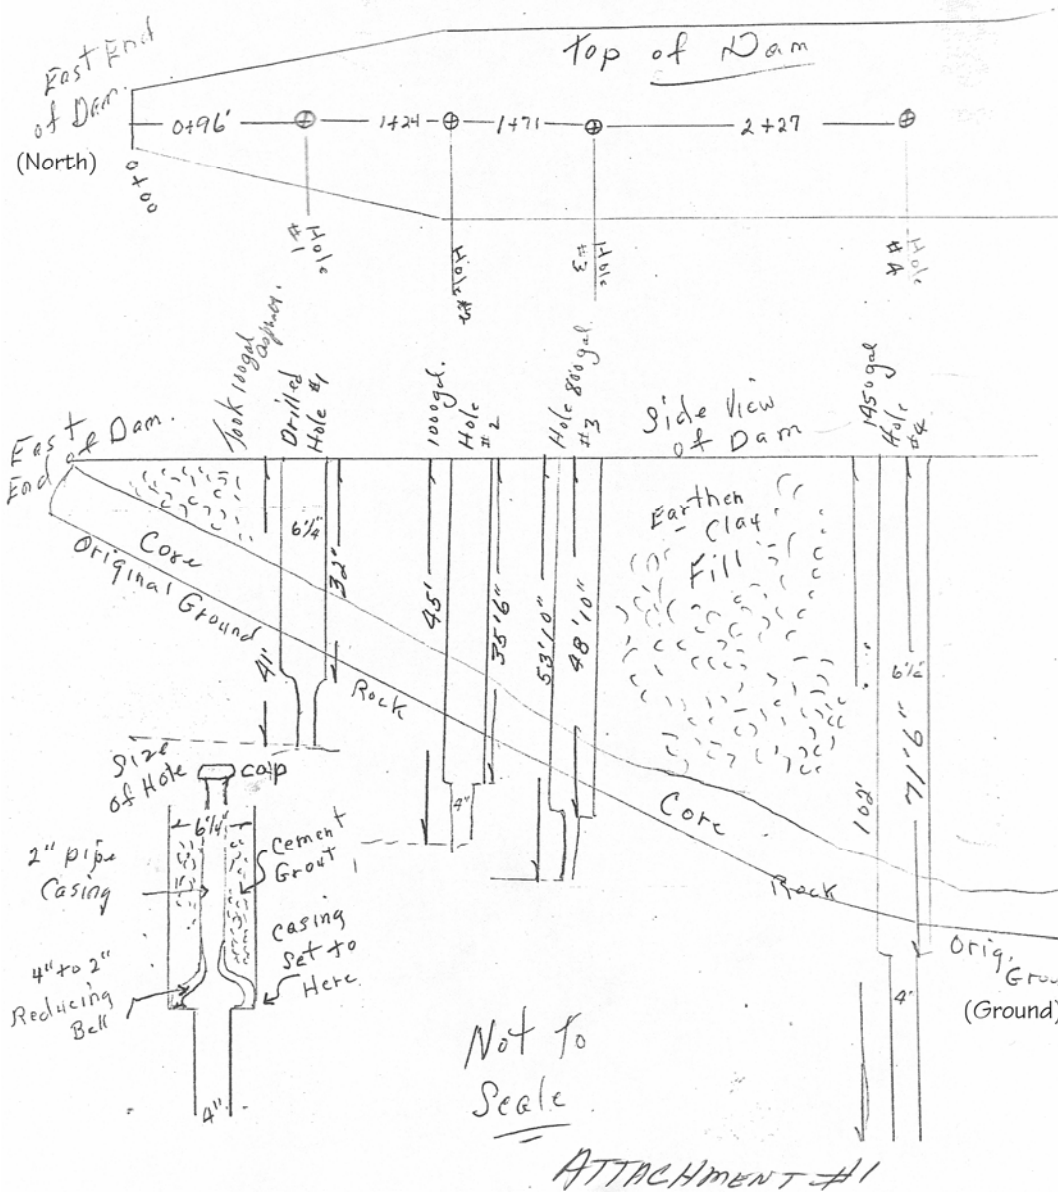 East End
of Dam.
(North)
0+00
Top of Dam
0+96'
1+24
1+71
2+27
Hole
#1
Hole
#2
Hole
#3
Hole
#4
East
End of Dam.
Took 100gal
asphalt.
Drilled
Hole #1
1000gal.
Hole
#2
Hole 800gal.
#3
Side View
of Dam
1450gal
Hole
#4
Earthen
Clay
Fill
Core
Original Ground
Rock
6¼"
32"
41'
45'
35'6"
4"
53'10"
48'10"
102'
6¼"
71'9"
4"
Core
Rock
Orig.
Grou
(Ground)
Size
of Hole
cap
6¼"
2" pipe
Casing
Cement
Grout
Casing
Set to
Here
4" to 2"
Reducing
Bell
4"
Not to
Scale
ATTACHMENT #1